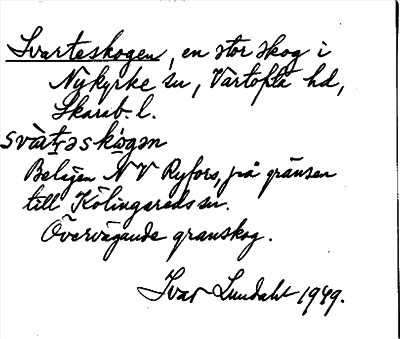 Svarteskogen, en stor skog i
Nykyrke sn, Vartofta hd,
Skarab. l.
svàṭəskọ́gən
Belägen NV Ryfors, på gränsen
till Kölingareds sn.
Övervägande granskog.
Ivar Lundahl 1949.